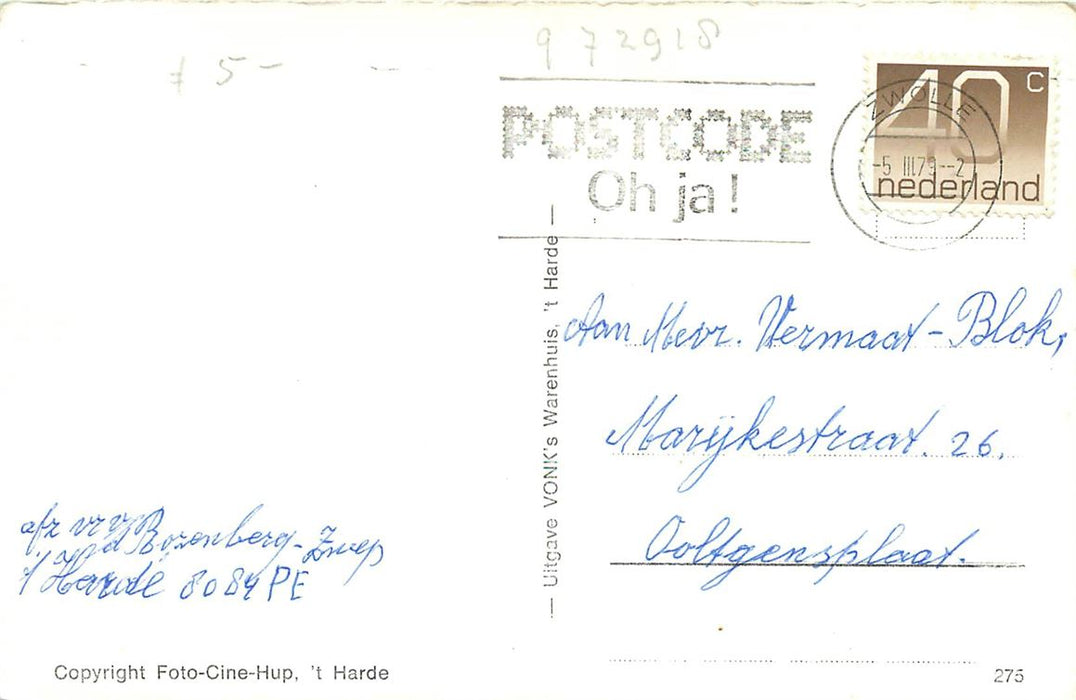 972918
5-
POSTCODE
Oh ja!
ZWOLLE
-5 III.79--2
40 C
nederland
— Uitgave VONK's Warenhuis, 't Harde —
Aan Mevr. Vermaat-Blok,
Marijkestraat. 26.
Ooltgensplaat.
afz
d Rozenberg-Zweep
't Harde 8084PE
Copyright Foto-Cine-Hup, 't Harde
275